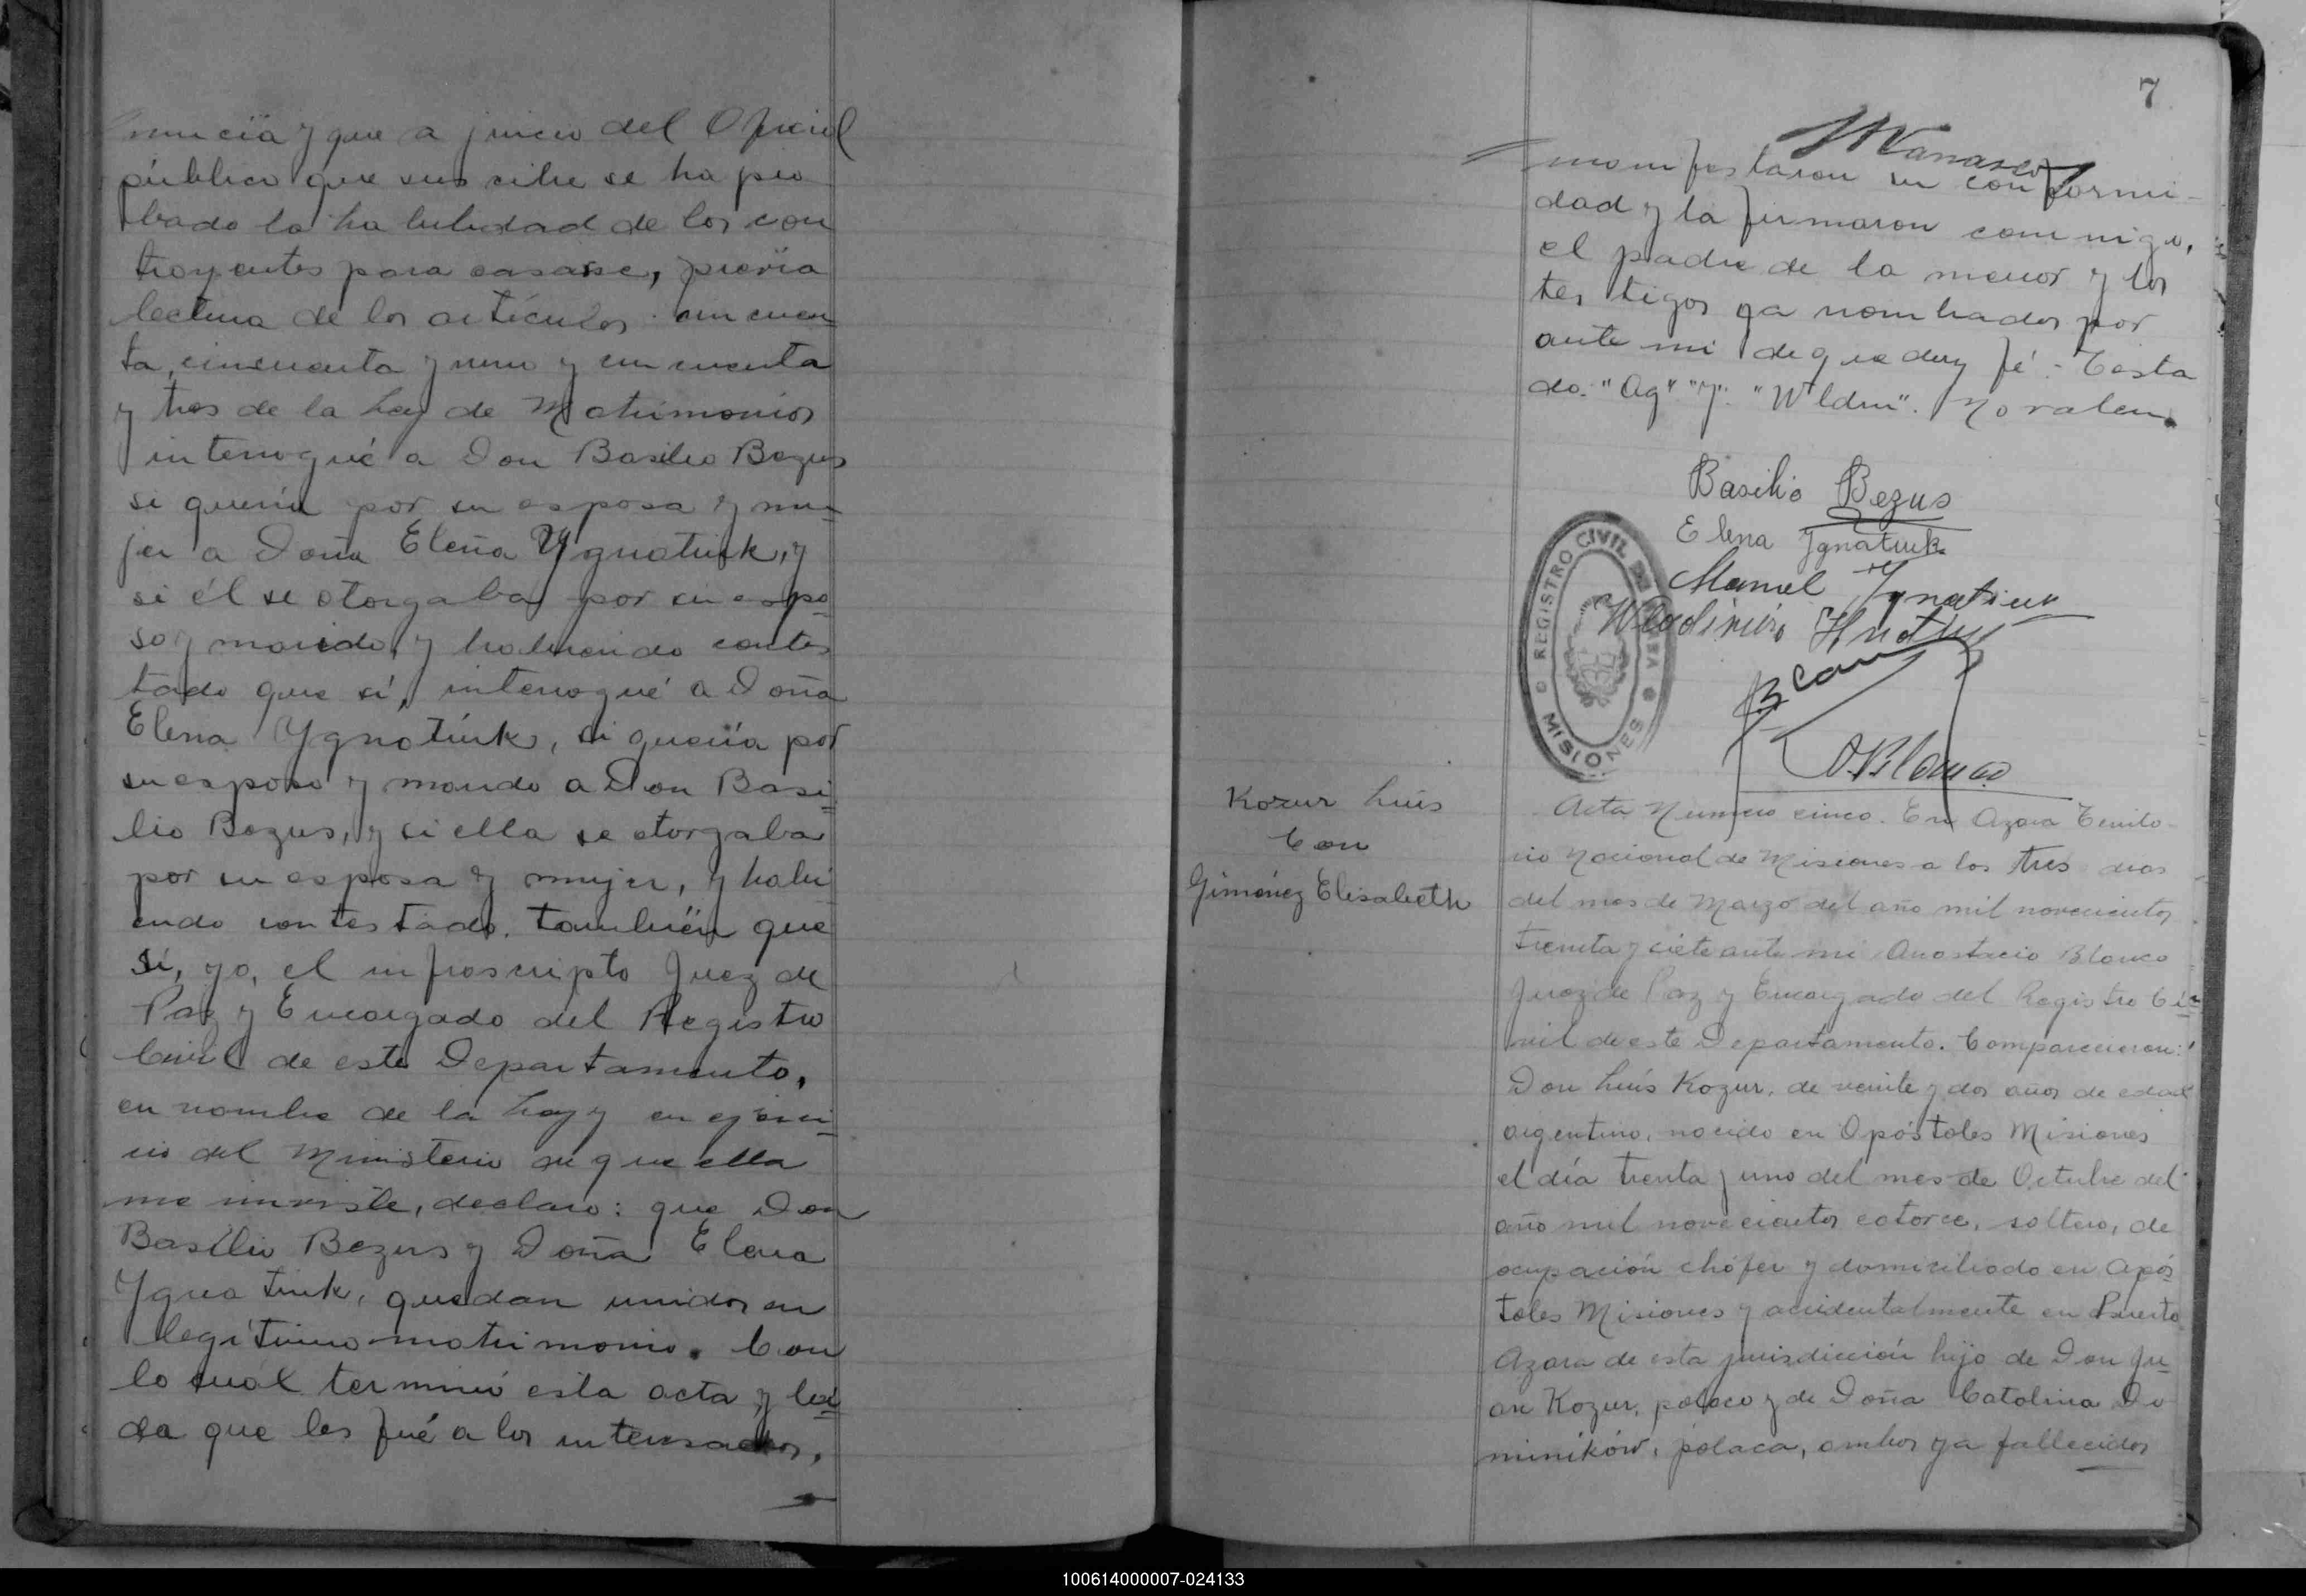 nuncia y que a juicio del Oficial
público que suscribe se ha pro
bado la habilidad de los con
trayentes para casarse, previa
lectura de los artículos cincuen
ta, cincuenta y uno y cincuenta
y tres de la Ley de Matrimonios
interrogué a Don Basilio Bezus
si quería por su esposa y mu=
jer a Doña Elena Ygnatiuk, y
si él se otorgaba por su espo=
so y marido, y habiendo contes
tado que sí, interrogué a Doña
Elena Ygnatiuk, si quería por
su esposo y marido a Don Basi=
lio Bezus, y si ella se otorgaba
por su esposa y mujer, y habi
endo contestado también que
sí, yo, el infrascripto Juez de
Paz y Encargado del Registro
Civil de este Departamento,
en nombre de la Ley y en ejerci=
cio del Ministerio de que ella
me inviste, declaro: que Don
Basilio Bezus y Doña Elena
Ygnatiuk, quedan unidos en
legítimo matrimonio. Con
lo cuál terminó esta acta y leí=
da que les fué a los interesados,
7
manifestaron su conformi-
dad y la firmaron conmigo,
el padre de la menor y los
testigos ya nombrados por
ante mi de que doy fé.- Testa
do: "Ag" "y". "Wldm". No valen.
Basilio Bezus
Elena Ygnatiuk
Manuel Ygnatiuk
Wladimiro
REGISTRO CIVIL
MISIONES
A. Blanco
Kozur Luis
Con
Giménez Elisabeth
Acta Número cinco. En Azara Territo-
rio Nacional de Misiones a los tres dias
del mes de Marzo del año mil novecientos
treinta y siete ante mi Anastacio Blanco
Juez de Paz y Encargado del Registro Ci=
vil de este Departamento. Comparecieron:
Don Luis Kozur, de veinte y dos años de edad
argentino, nacido en Apóstoles Misiones
el día treinta y uno del mes de Octubre del
año mil novecientos catorce, soltero, de
ocupación chófer y domiciliado en Após
toles Misiones y accidentalmente en Puerto
Azara de esta jurisdicción hijo de Don Ju=
an Kozur, polaco y de Doña Catalina Do
miników, polaca, ambos ya fallecidos
100614000007-024133